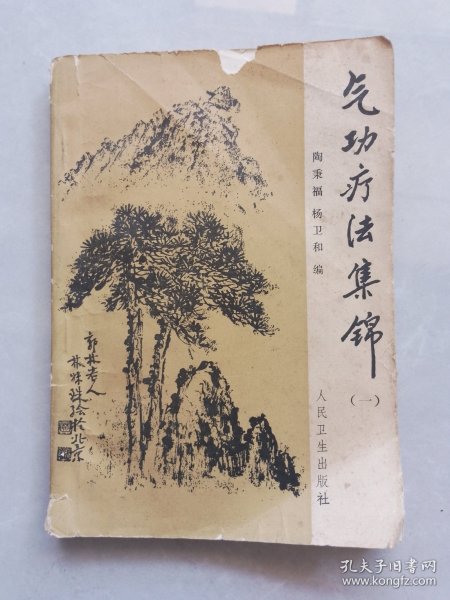 气功疗法集锦
(一)
陶秉福 杨卫和 编
人民卫生出版社
郭林老人
林妹殊绘于北京
孔夫子旧书网
www.kongfz.com